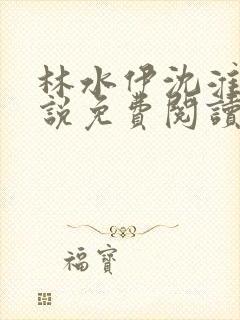 林水伊沈淮
說免費閱讀
福寶